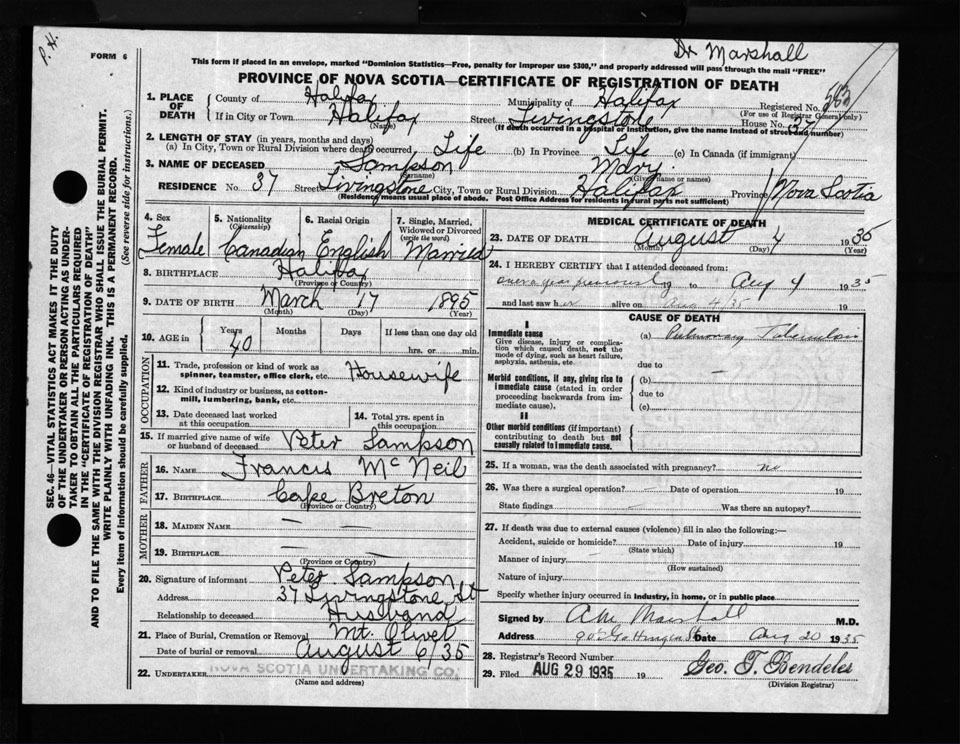 P. H.
Dr Marshall
FORM 6
This form if placed in an envelope, marked "Dominion Statistics—Free, penalty for improper use $300," and properly addressed will pass through the mail "FREE"
PROVINCE OF NOVA SCOTIA—CERTIFICATE OF REGISTRATION OF DEATH
SEC. 46—VITAL STATISTICS ACT MAKES IT THE DUTY
OF THE UNDERTAKER OR PERSON ACTING AS UNDER-
TAKER TO OBTAIN ALL THE PARTICULARS REQUIRED
IN THE "CERTIFICATE OF REGISTRATION OF DEATH"
AND TO FILE THE SAME WITH THE DIVISION REGISTRAR WHO SHALL ISSUE THE BURIAL PERMIT.
WRITE PLAINLY WITH UNFADING INK. THIS IS A PERMANENT RECORD.
Every item of information should be carefully supplied. (See reverse side for instructions.)
1. PLACE OF DEATH County of Halifax Municipality of Halifax Registered No. 563
(For use of Registrar General only)
If in City or Town Halifax Street Livingstone House No. 37
(Name) (If death occurred in a hospital or institution, give the name instead of street and number)
2. LENGTH OF STAY (in years, months and days)
(a) In City, Town or Rural Division where death occurred Life (b) In Province Life (c) In Canada (if immigrant)
3. NAME OF DECEASED Sampson Mary
(Surname) (Given name or names)
RESIDENCE No. 37 Street Livingstone City, Town or Rural Division Halifax Province Nova Scotia
(Residence means usual place of abode. Post Office Address for residents in rural parts not sufficient)
4. Sex 5. Nationality (Citizenship) 6. Racial Origin 7. Single, Married, Widowed or Divorced (write the word)
Female Canadian English Married
8. BIRTHPLACE Halifax
(Province or Country)
9. DATE OF BIRTH March 17 1895
(Month) (Day) (Year)
10. AGE in Years Months Days If less than one day old
40 hrs. or min.
OCCUPATION
11. Trade, profession or kind of work as spinner, teamster, office clerk, etc. Housewife
12. Kind of industry or business, as cotton-mill, lumbering, bank, etc.
13. Date deceased last worked at this occupation 14. Total yrs. spent in this occupation
15. If married give name of wife or husband of deceased Peter Sampson
FATHER
16. NAME Francis McNeil
17. BIRTHPLACE Cape Breton
(Province or Country)
MOTHER
18. MAIDEN NAME — —
19. BIRTHPLACE — —
(Province or Country)
20. Signature of informant Peter Sampson
Address 37 Livingstone St
Relationship to deceased Husband
21. Place of Burial, Cremation or Removal Mt. Olivet
Date of burial or removal August 6/35
22. UNDERTAKER NOVA SCOTIA UNDERTAKING CO.
(Name and address)
MEDICAL CERTIFICATE OF DEATH
23. DATE OF DEATH August 4 1935
(Month) (Day) (Year)
24. I HEREBY CERTIFY that I attended deceased from:
over a year previously to Aug 4 1935
and last saw her alive on Aug 4 35 19
CAUSE OF DEATH
I
Immediate cause (a) Pulmonary
Give disease, injury or complication which caused death, not the mode of dying, such as heart failure, asphyxia, asthenia, etc.
due to —
Morbid conditions, if any, giving rise to immediate cause (stated in order proceeding backwards from immediate cause).
(b)
due to
(c)
II
Other morbid conditions (if important) contributing to death but not causally related to immediate cause.
25. If a woman, was the death associated with pregnancy? no
26. Was there a surgical operation? — Date of operation 19
State findings — Was there an autopsy?
27. If death was due to external causes (violence) fill in also the following:—
Accident, suicide or homicide? Date of injury 19
(State which)
Manner of injury —
(How sustained)
Nature of injury
Specify whether injury occurred in industry, in home, or in public place
Signed by A M Marshall M.D.
Address Gottingen St Date Aug 20 1935
28. Registrar's Record Number
29. Filed AUG 29 1935 19 Geo. T.
(Division Registrar)